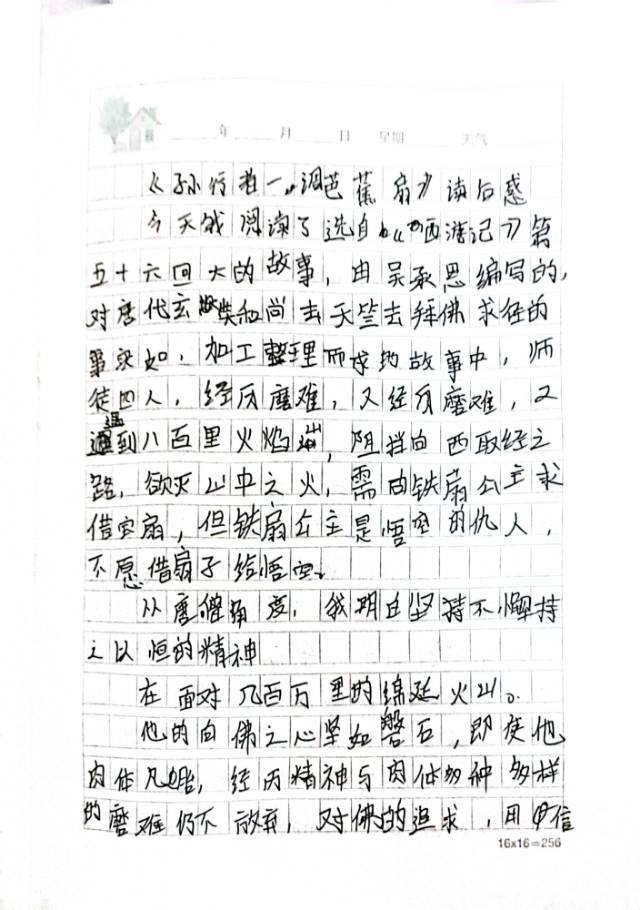 年 月 日 星期 天气
《孙行者一调芭蕉扇》读后感
今天我阅读了选自《西游记》第
五十六回大的故事,由吴承恩编写的,
对唐代玄奘和尚去天竺去拜佛求径的
事突如,加工整理而成地故事中,师
徒四人,经历磨难,又经历磨难,又
遇到八百里火焰山,阻挡向西取经之
路,欲灭山中之火,需由铁扇公主求
借宝扇,但铁扇公主是悟空的仇人,
不愿借扇子给悟空。
从唐僧角度,我明白坚持不懈持
之以恒的精神
在面对几百万里的绵延火山。
他的向佛之心坚如磐石,即使他
肉体凡胎,经历精神与肉体多种多样
的磨难仍不放弃,对佛的追求,用信
16x16=256